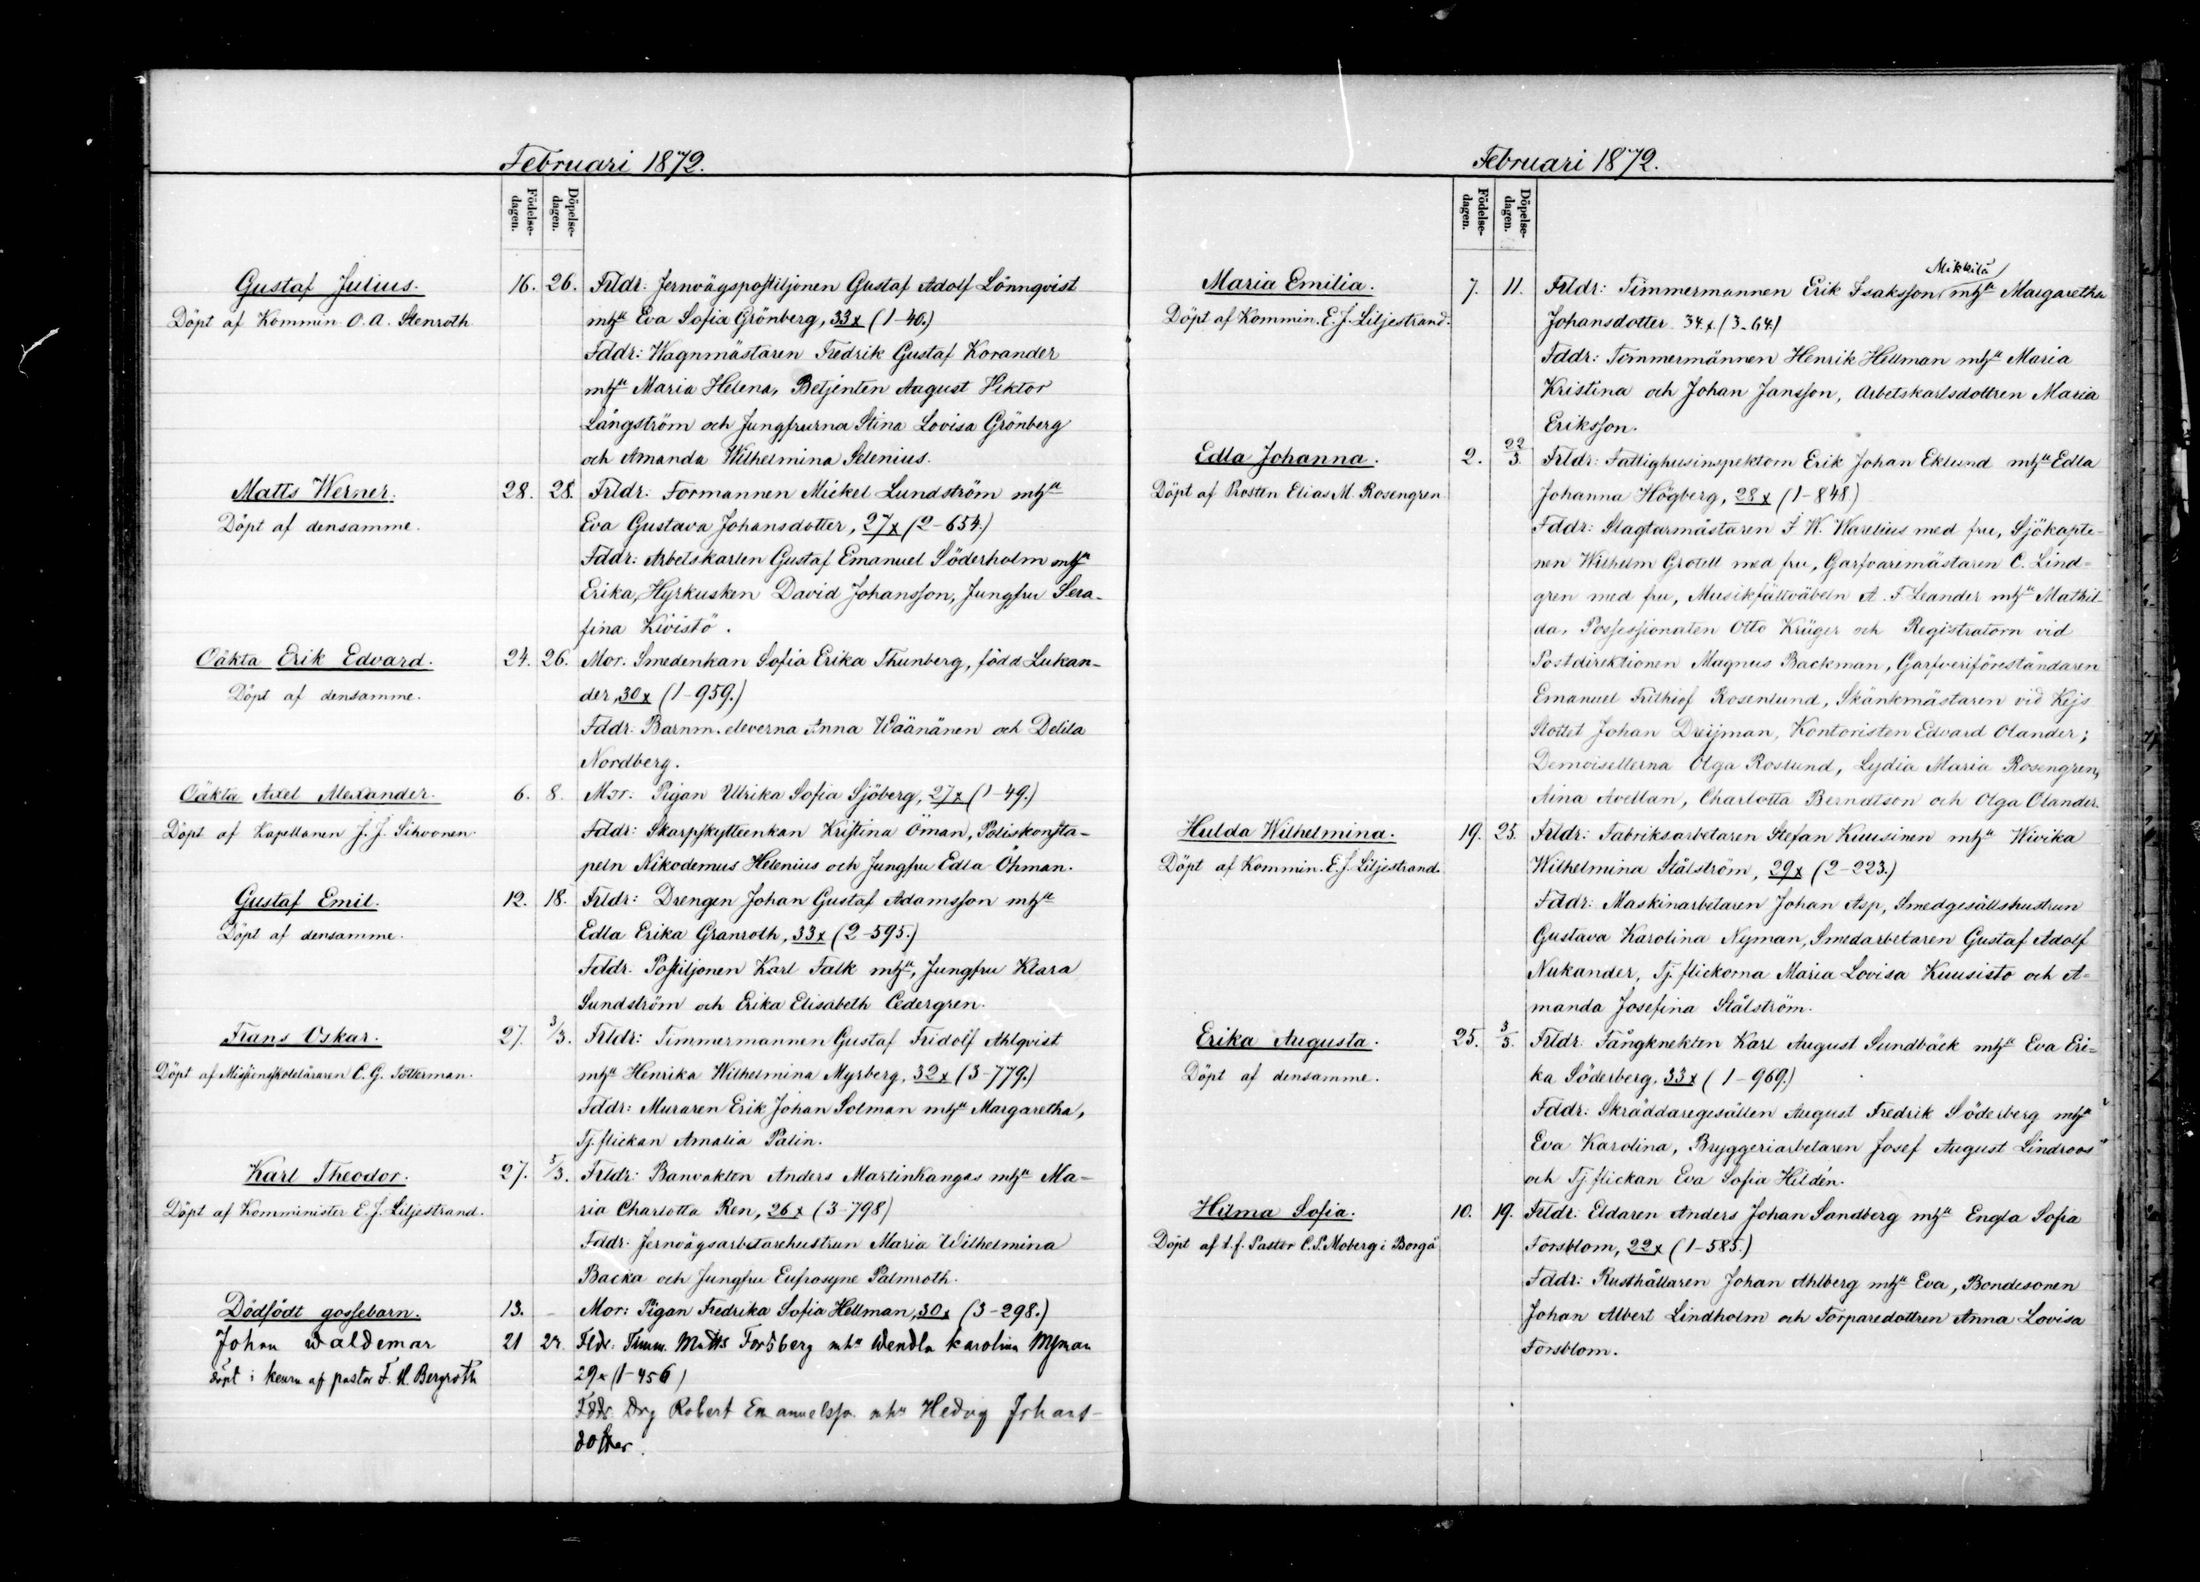 Februari 1872.
Födelse-dagen.
Döpelse-dagen.
Gustaf Julius. 16. 26. Frldr: Jernvägspostiljonen Gustaf Adolf Lönnqvist
Döpt af Kommin. O. A. Stenroth mhu Eva Sofia Grönberg, 33x (1-40.)
Fddr: Wagnmästaren Fredrik Gustaf Korander
mhu Maria Helena, Betjenten August Viktor
Långström och Jungfrurna Stina Lovisa Grönberg
och Amanda Wilhelmina Selenius.
Matts Werner. 28. 28. Frldr: Formannen Mickel Lundström mhu
Döpt af densamme. Eva Gustava Johansdotter, 27x (2-654.)
Fddr: Arbetskarlen Gustaf Emanuel Söderholm mhu
Erika, Hyrkusken David Johansson, Jungfru Sera-
fina Kivistö.
Oäkta Erik Edvard. 24. 26. Mor. Smedenkan Sofia Erika Thunberg, född Lukan-
Döpt af densamme. der, 30x (1-959.)
Fddr: Barnm. eleverna Anna Wäänänen och Delila
Nordberg.
Oäkta Axel Alexander. 6. 8. Mor: Pigan Ulrika Sofia Sjöberg, 27x (1-49.)
Döpt af Kapellanen J. J. Sihvonen. Fddr: Skarpskytteenkan Kristina Öman, Poliskonsta-
peln Nikodemus Helenius och Jungfru Edla Öhman.
Gustaf Emil. 12. 18. Frldr: Drengen Johan Gustaf Adamsson mhu
Döpt af densamme. Edla Erika Granroth, 33x (2-595.)
Fddr. Postiljonen Karl Falk mhu, Jungfru Klara
Sundström och Erika Elisabeth Cedergren.
Frans Oskar. 27. 3/3. Frldr: Timmermannen Gustaf Fridolf Ahlqvist
Döpt af Missionsskoleläraren C. G. Tötterman. mhu Henrika Wilhelmina Myrberg, 32x (3-779.)
Fddr: Muraren Erik Johan Solman mhu Margaretha,
Tj. flickan Amalia Palin.
Karl Theodor. 27. 5/3. Frldr: Banvakten Anders Martinkangas mhu Ma-
Döpt af Komminister E. J. Liljestrand. ria Charlotta Ren, 26x (3-798)
Fddr. Jernvägsarbetarehustrun Maria Wilhelmina
Backa och Jungfru Eufrosyne Palmroth.
Dödfödt gossebarn. 13. - Mor: Pigan Fredrika Sofia Hellman, 30x (3-298.)
Johan Waldemar 21 Fldr: Timm. Matts Forsberg mhu Wendla Karolina Nyman
döpt i af pastor F. A. Bergroth 29x (1-456)
Fddr. Drg Robert Emanuelsso. mhu Hedvig Johans-
dotter.
Februari 1872.
Födelse-dagen.
Döpelse-dagen.
Mikkilä
Maria Emilia. 7. 11. Frldr: Timmermannen Erik Isaksson mhu Margaretha
Döpt af Kommin. E. J. Liljestrand. Johansdotter 34x (3-64)
Fddr: Timmermännen Henrik Hellman mhu Maria
Kristina och Johan Jansson, Arbetskarlsdottren Maria
Eriksson.
Edla Johanna. 2. 22/3. Frldr: Fattighusinspektorn Erik Johan Eklund mhu Edla
Döpt af Prosten Elias M. Rosengren Johanna Högberg, 28x (1-848)
Fddr: Slagtarmästaren F W. Warelius med fru, Sjökapte-
nen Wilhelm Grotell med fru, Garfvaremästaren C. Lind-
gren med fru, Musikfältväbeln A. F. Leander mhu Mathil-
da, Possessionaten Otto Krüger och Registratorn vid
Postdirektionen Magnus Backman, Garfveriföreståndaren
Emanuel Frithiof Rosenlund, Skänkmästaren vid Kejs
Slottet Johan Dreijman, Kontoristen Edvard Olander;
Demoisellerna Olga Roslund, Lydia Maria Rosengren,
Aina Avellan, Charlotta Berndtson och Olga Olander.
Hulda Wilhelmina. 19. 25. Frldr: Fabriksarbetaren Stefan Kuusinen mhu Wivika
Döpt af Kommin. E. J. Liljestrand. Wilhelmina Stålström, 29x (2-223.)
Fddr: Maskinarbetaren Johan Asp, Smedgesällshustrun
Gustava Karolina Nyman, Smedarbetaren Gustaf Adolf
Nukander, Tj. flickorna Maria Lovisa Kuusisto och A-
manda Josefina Stålström.
Erika Augusta. 25. 3/3. Frldr: Fångknekten Karl August Sundbäck mhu Eva Eri-
Döpt af densamme. ka Söderberg, 33x (1-969.)
Fddr: Skräddaregesällen August Fredrik Söderberg mhu
Eva Karolina, Bryggeriarbetaren Josef August Lindroos
och Tj flickan Eva Sofia Hildén.
Hilma Sofia. 10. 19. Frldr: Eldaren Anders Johan Sandberg mhu Engla Sofia
Döpt af t. f. Pastor C. P. Moberg i Borgå Forsblom, 22x (1-585.)
Fddr: Rusthållaren Johan Ahlberg mhu Eva, Bondesonen
Johan Albert Lindholm och Torparedottren Anna Lovisa
Forsblom.